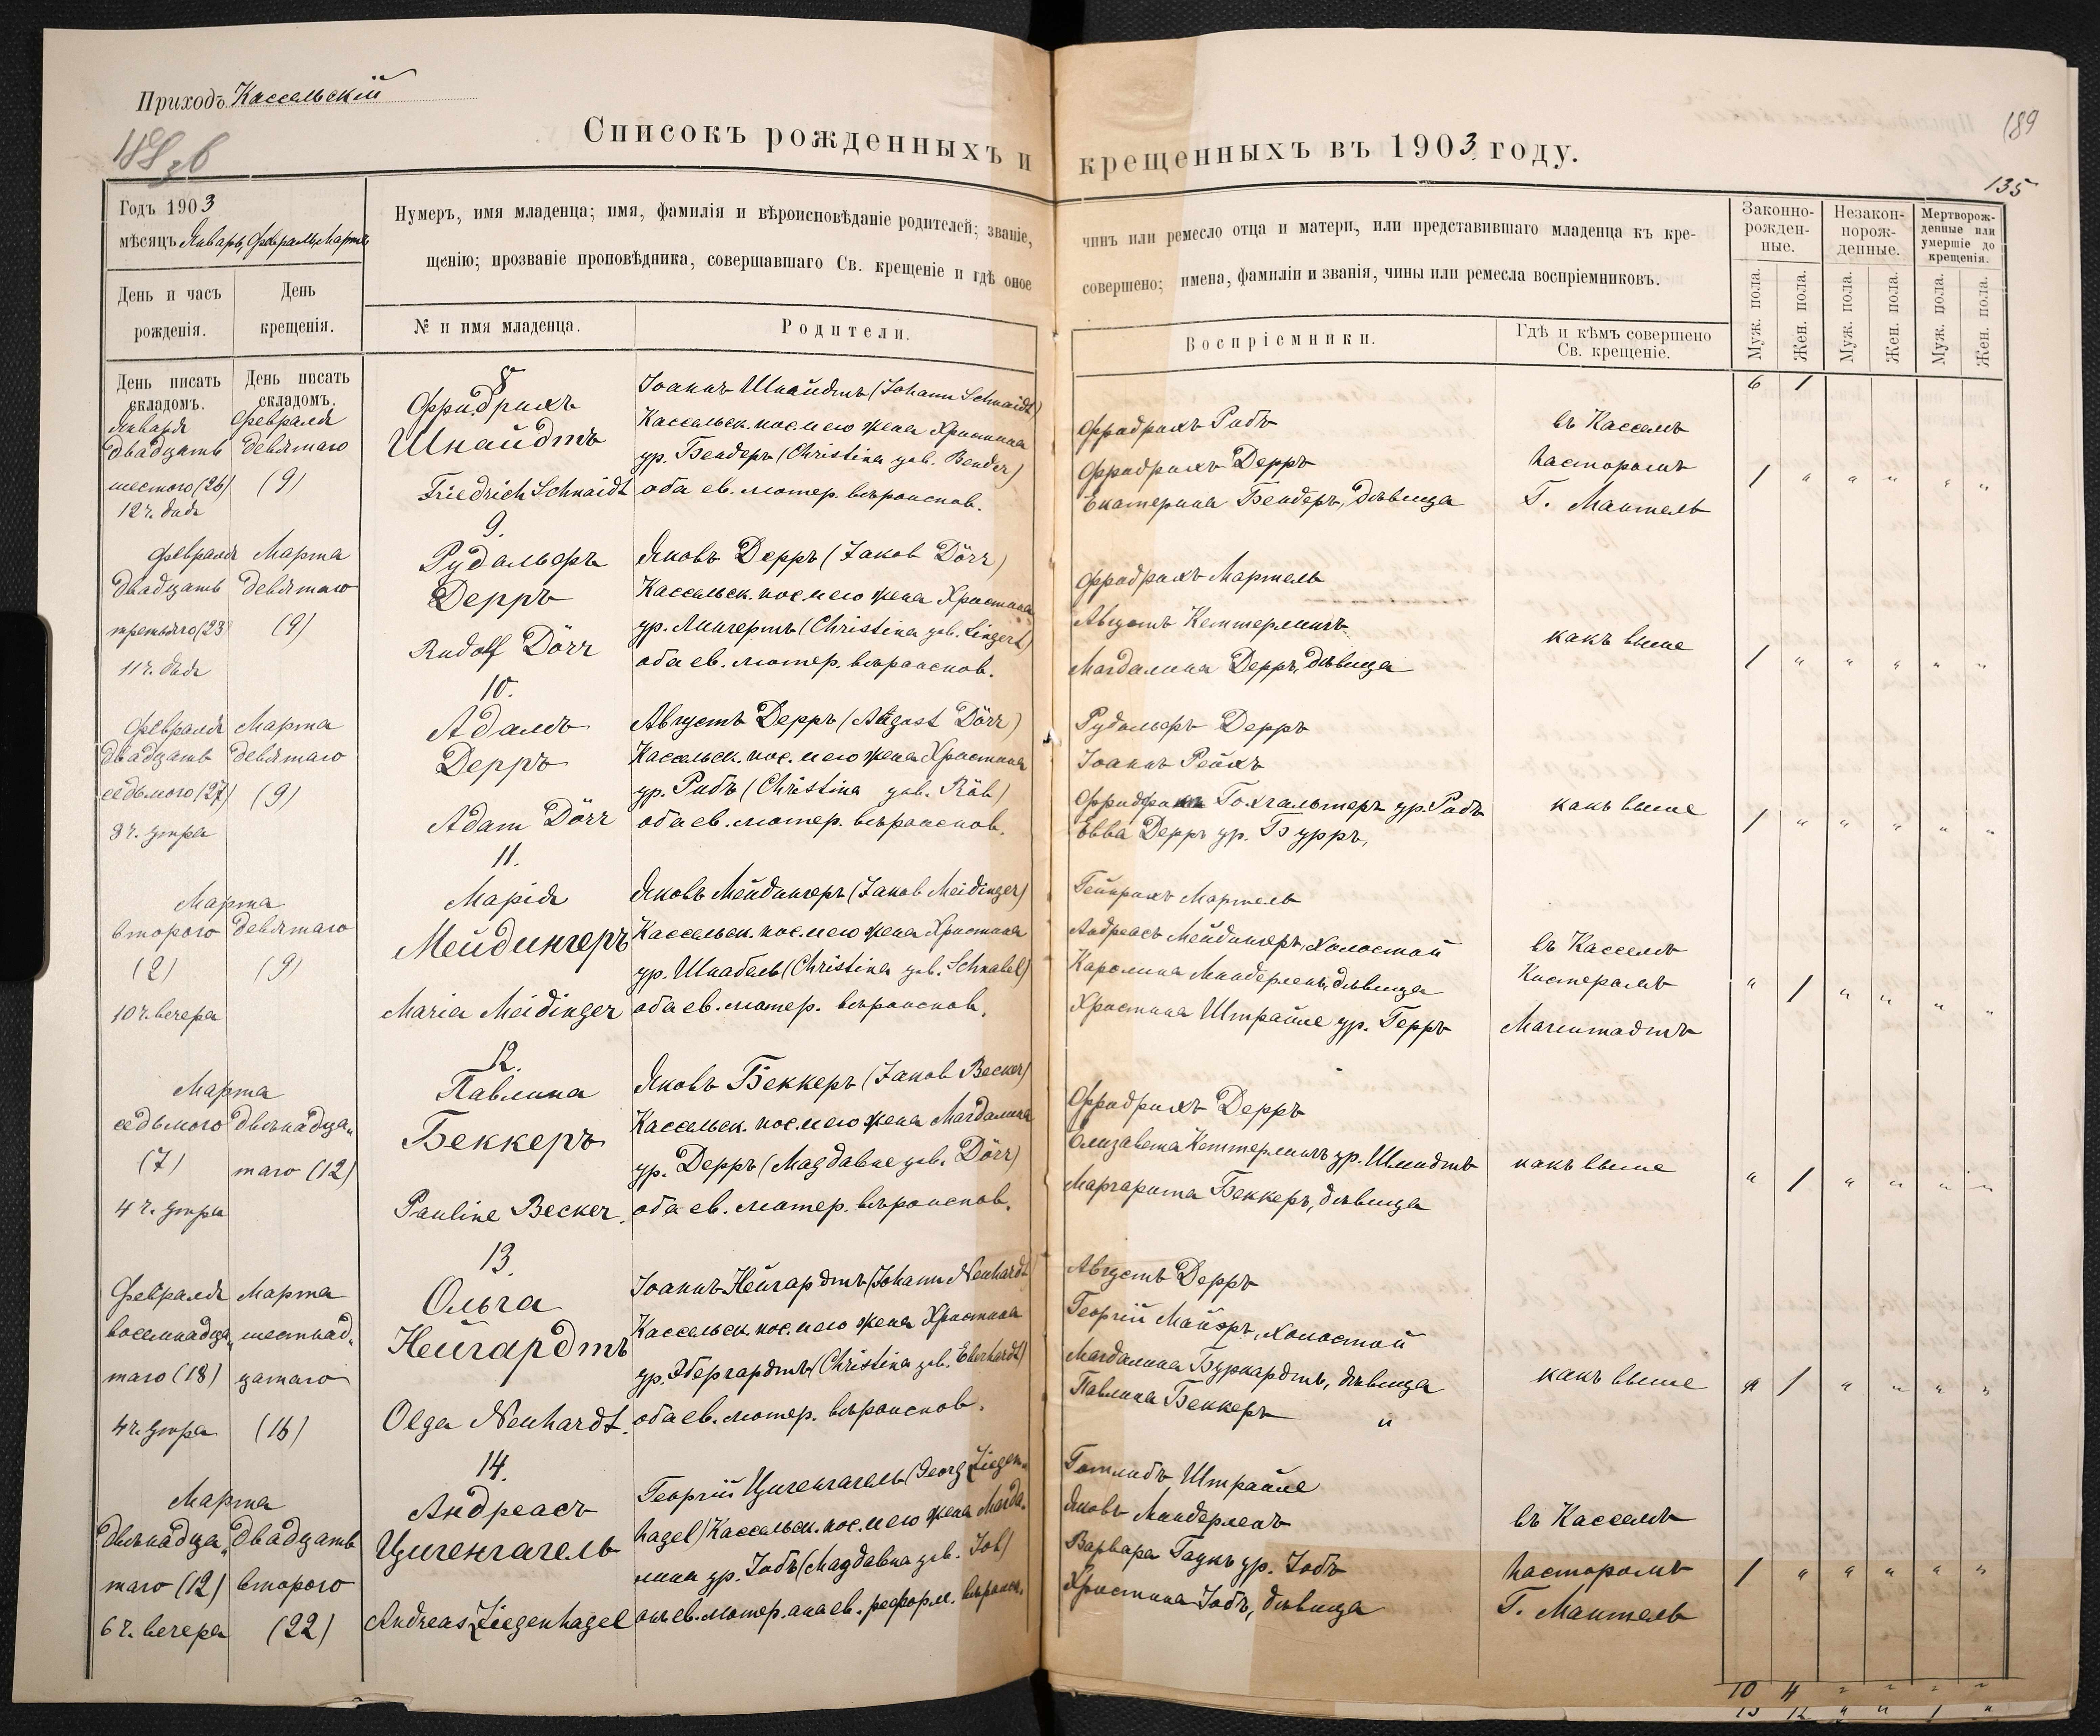 Приходъ Кассельскій
189
Списокъ рожденныхъ и крещенныхъ въ 1903 году.
135
Годъ 1903
мѣсяцъ Январь, Февраль, Мартъ
Нумеръ, имя младенца; имя, фамилія и вѣроисповѣданіе родителей; званіе, чинъ или ремесло отца и матери, или представившаго младенца къ кре-
щенію; прозваніе проповѣдника, совершавшаго Св. крещеніе и гдѣ оное совершено; имена, фамиліи и званія, чины или ремесла воспріемниковъ.
Законно-
рожден-
ные.
Незакон-
норож-
денные.
Мертворож-
денные или
умершіе до
крещенія.
День и часъ
рожденія.
День
крещенія.
№ и имя младенца.
Родители.
Воспріемники.
Гдѣ и кѣмъ совершено
Св. крещеніе.
Муж. пола.
Жен. пола.
Муж. пола.
Жен. пола.
Муж. пола.
Жен. пола.
День писать
складомъ.
День писать
складомъ.
6 1
Января
двадцать
шестого (26)
12 ч. дня
Февраля
девятаго
(9)
8
Фридрихъ
Шнайдтъ
Friedrich Schnaidt
Іоаннъ Шнайдтъ (Johann Schnaidt)
Кассельск. пос. и его жена Христина
ур. Бендеръ (Christina geb. Bender)
оба ев. лютер. вѣроиспов.
Фридрихъ Рибъ
Фридрихъ Дерръ
Екатерина Бендеръ, дѣвица
въ Касселѣ
пасторомъ
Г. Мантель
1 " " " " "
Февраля
двадцать
третьяго (23)
11 ч. дня
Марта
девятаго
(9)
9.
Рудольфъ
Дерръ
Rudolf Dörr
Яковъ Дерръ (Jakob Dörr)
Кассельск. пос. и его жена Христина
ур. Лингертъ (Christina geb. Lingert)
оба ев. лютер. вѣроиспов.
Фридрихъ Мартель
Августъ Кеттерлингъ
Магдалина Дерръ, дѣвица
какъ выше
1 " " " " "
Февраля
двадцать
седьмого (27)
8 ч. утра
Марта
девятаго
(9)
10.
Адамъ
Дерръ
Adam Dörr
Августъ Дерръ (August Dörr)
Кассельск. пос. и его жена Христина
ур. Рибъ (Christina geb. Räb)
оба ев. лютер. вѣроиспов.
Рудольфъ Дерръ
Іоаннъ Рейхъ
Гохгальтеръ ур. Рибъ
Евва Дерръ ур. Бурръ,
какъ выше
1 " " " " "
Марта
второго
(2)
10 ч. вечера
девятаго
(9)
11.
Марія
Мейдингеръ
Maria Meidinger
Яковъ Мейдингеръ (Jakob Meidinger)
Кассельск. пос. и его жена Христина
ур. Шнабель (Christina geb. Schnabel)
оба ев. лютер. вѣроиспов.
Гейнрихъ Мартель
Андреасъ Мейдингеръ, холостой
Каролина Миндерленъ, дѣвица
Христина Штрайле ур. Герръ
въ Касселѣ
Кистеромъ
" 1 " " " "
Марта
седьмого
(7)
4 ч. утра
двѣнадца-
таго (12)
12.
Павлина
Беккеръ
Pauline Becker.
Яковъ Беккеръ (Jakob Becker)
Кассельск. пос. и его жена Магдалина
ур. Дерръ (Magdaline geb. Dörr)
оба ев. лютер. вѣроиспов.
Фридрихъ Дерръ
Елизавета Кеттерлингъ ур. Шмидтъ
Маргарита Беккеръ, дѣвица
какъ выше
" 1 " " " "
Февраля
восемнадца-
таго (18)
4 ч. утра
Марта
шестнад-
цатаго
(16)
13.
Ольга
Нейгардтъ
Olga Neuhardt.
Іоаннъ Нейгардтъ (Johann Neuhardt)
Кассельск. пос. и его жена Христина
ур. Эбергардтъ (Christina geb. Eberhardt)
оба ев. лютер. вѣроиспов.
Августъ Дерръ
Георгій Майеръ, холостой
Магдалина Буркардтъ, дѣвица
Павлина Беккеръ "
какъ выше
" 1 " " " "
Марта
двѣнадца-
таго (12)
6 ч. вечера
двадцать
второго
(22)
14.
Андреасъ
Цигенгагель
Andreas Ziegenhagel
Георгій Цигенгагель (Georg Ziegen-
hagel) Кассельск. пос. и его жена Магда-
лина ур. Іобъ (Magdalina geb. Job)
онъ ев. лютер. она ев. реформ. вѣроисп.
Готлибъ Штрайле
Яковъ Миндерленъ
Варвара Гаукъ ур. Іобъ
Христина Іобъ, дѣвица
въ Касселѣ
пасторомъ
Г. Мантель
1 " " " " "
10 4 " " " "